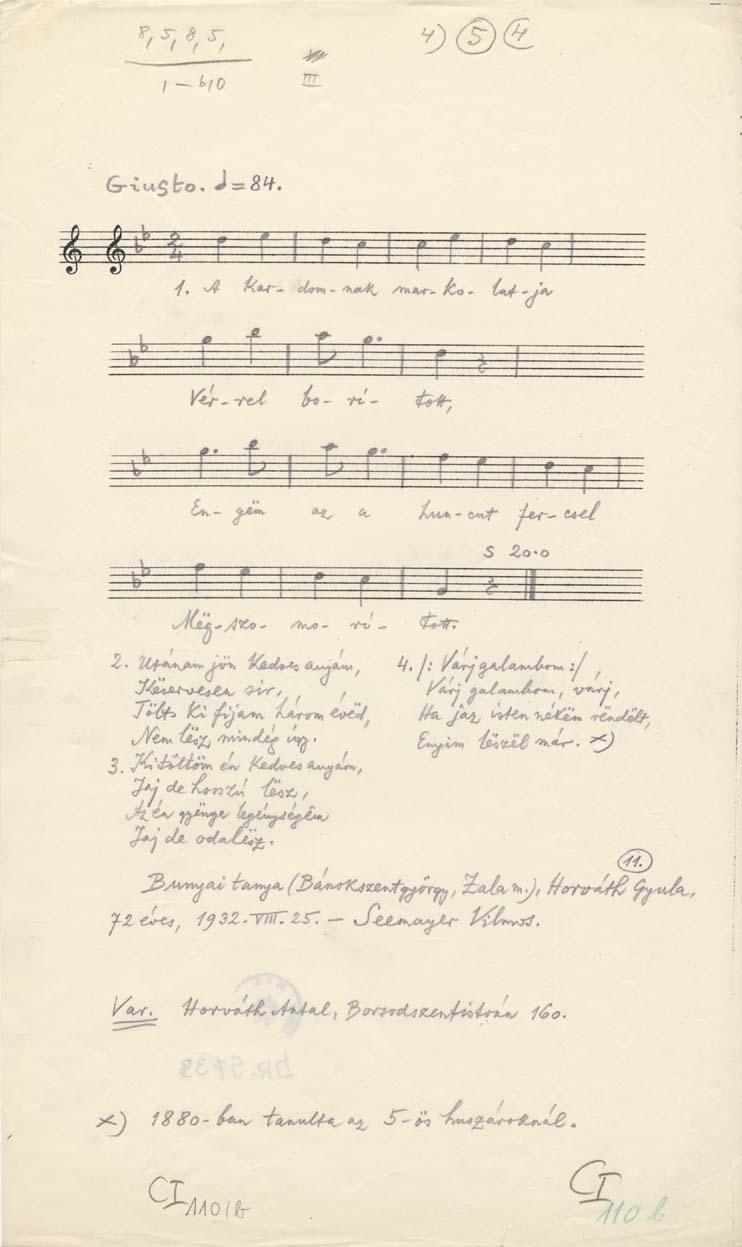 8, 5, 8, 5,
1 – b10
III
4) 5 4
Giusto. = 84.
2 4
1. A kar- dom- nak mar- ko- lat- ja
Vér- rel bo- rí- tott,
En- gëm az a hun- cut fer- csel
S 20.0
Mëg- szo- mo- rí- tott.
2. Utánam jön kedves anyám,
Késervesen sir,
Tölts ki fijam három évëd,
Nem lësz mindég így.
3. Kitöltöm én kedves anyám,
Jaj de hosszú lësz,
Az én gyönge legénységëm
Jaj de odalësz.
4. /: Várj galambom :/
Várj galambom, várj,
Ha jaz isten nékëm rëndölt,
Enyim lëszël már. x)
11.
Bunyai tanya (Bánokszentgyörgy, Zala m.), Horváth Gyula,
72 éves, 1932. VIII. 25. – Seemayer Vilmos.
Var. Horváth Antal, Borsodszentistván 160.
BR. 5733
x) 1880-ban tanulta az 5-ös huszároknál.
CI 110/b
CI 110 b